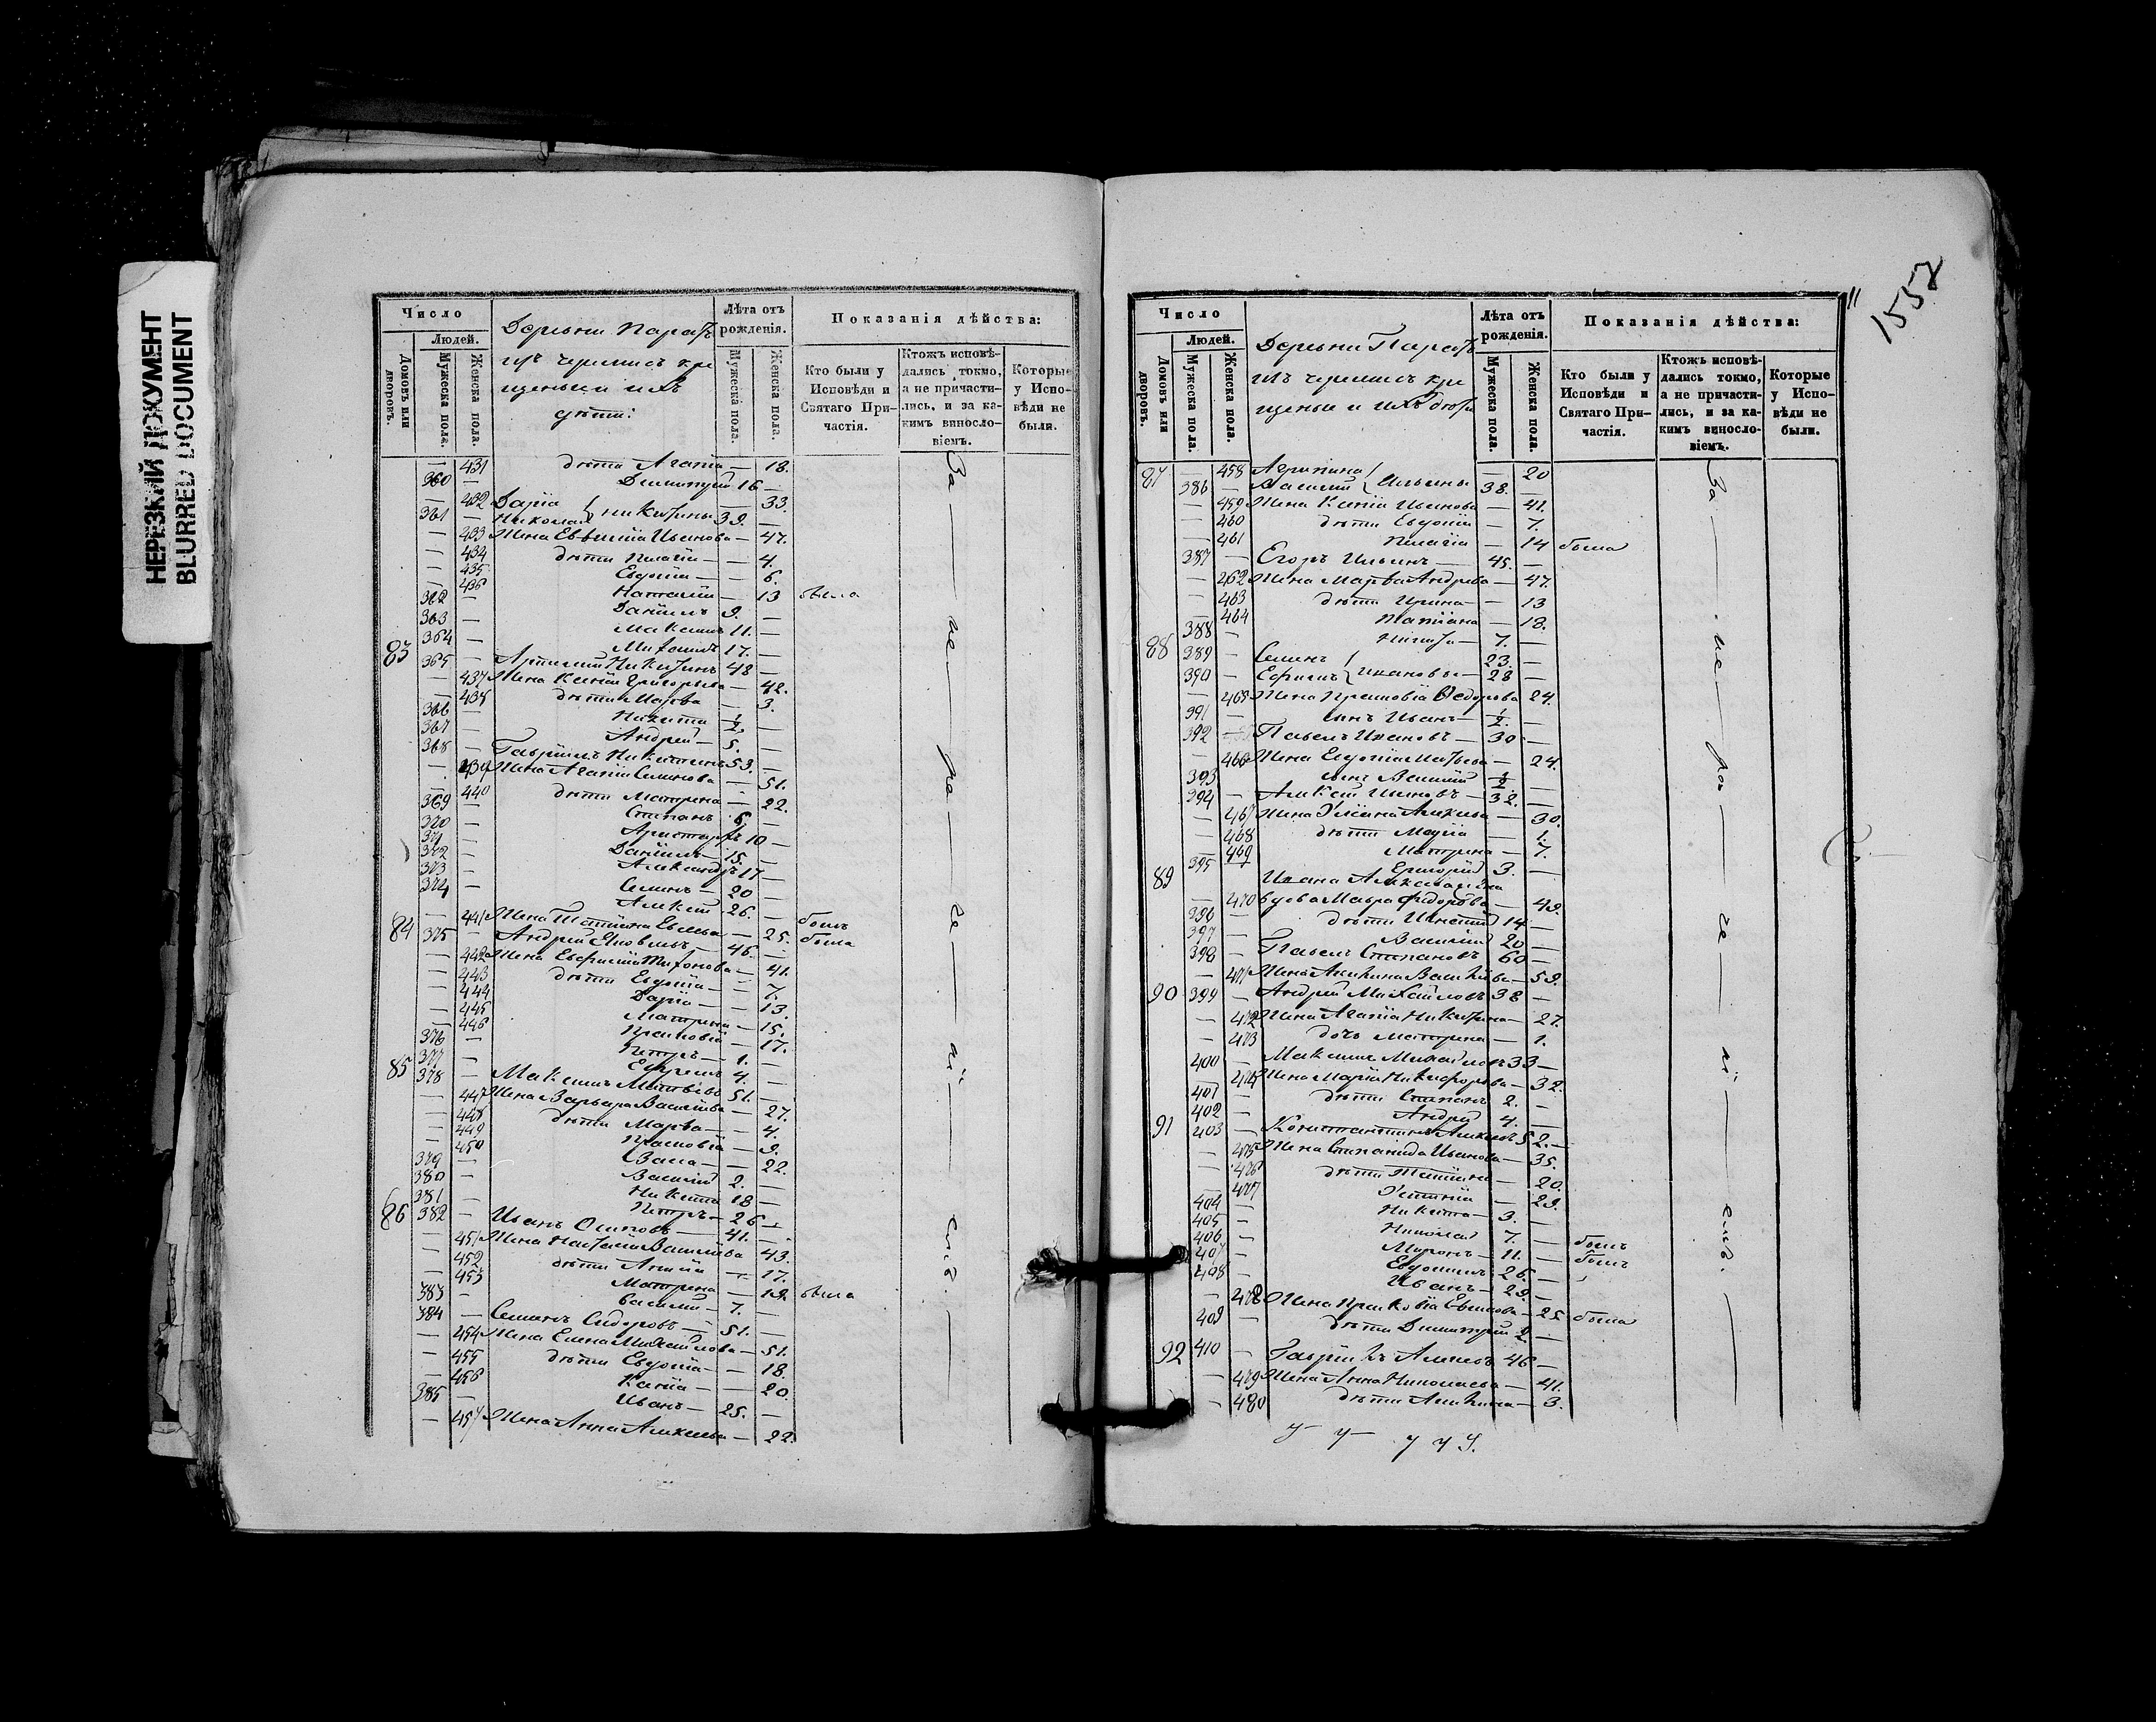 НЕРЕЗКИЙ ДОКУМЕНТ
BLURRED DOCUMENT
Число
Людей.
Домовъ или дворовъ.
Мужеска пола.
Женска пола.
Деревни
изъ черемисъ кре
щеныи и ихъ
дѣти:
Лѣта отъ рожденія.
Мужеска пола.
Женска пола.
Показанія дѣйства:
Кто были у Исповѣди и Святаго Причастія.
Ктожъ исповѣдались токмо, а не причастились, и за какимъ винословіемъ.
Которые у Исповѣди не были.
— 431 дѣти Агапія — 18.
360 — Димитрій 16 —
— 432 Дарія — 33.
361 — Николай Никитины 39. —
— 433 Жена Евфимія Иванова — 47.
— 434 дѣти Пелагія — 4.
— 435 Евдокія — 6.
— 436 Наталія — 13 была
362 — Даніилъ 9. —
363 — Максимъ 11. —
364 — 17. —
83 365 — Никитинъ 48 —
— 437 Жена Ксенія Григорьева — 42.
— 438 дѣти Марѳа — 3.
366 — Никита ½ —
367 — Андрей 5. —
368 — Гавріилъ Никитинъ 53. —
— 439 Жена Агапія Семенова — 51.
— 440 дѣти Матрена — 22.
369 — Степанъ 6. —
370 — Аристархъ 10 —
371 — Даніилъ 15. —
372 — Александръ 17 —
373 — Семенъ 20 —
374 — Алексѣй 26. — былъ
— 441 Жена — 25. была
84 375 — Андрей Яковлевъ 46. —
— 442 Жена Евфимія Тихонова — 41.
— 443 дѣти Евдокія — 7.
— 444 Дарія — 13.
— 445 Матрена — 15.
— 446 Прасковія — 17.
376 — Петръ 1. —
377 — Ефремъ 4. —
85 378 — Максимъ Матвѣевъ 51. —
— 447 Жена Варвара Васильева — 27.
— 448 дѣти Марѳа — 4.
— 449 Прасковія — 9.
— 450 — 22.
379 — Василій 2. —
380 — Никита 18 —
381 — Петръ 26 —
86 382 — Иванъ Осиповъ 41. —
— 451 Жена Наталія Васильева 43.
— 452 дѣти — 17.
— 453 Матрена — 19. была
383 — Василій 7. —
384 — Семенъ Сидоровъ 51. —
— 454 Жена Елена Михайлова — 51.
— 455 дѣти Евдокія — 18.
— 456 Ксенія — 20.
385 — Иванъ 25. —
— 457 Жена Анна Алексѣева — 22.
За — не — ра — че — ні — емъ. —
11
1558
Число
Людей.
Домовъ или дворовъ.
Мужеска пола.
Женска пола.
Деревни
изъ черемисъ кре
щеные и ихъ дѣти
Лѣта отъ рожденія.
Мужеска пола.
Женска пола.
Показанія дѣйства:
Кто были у Исповѣди и Святаго Причастія.
Ктожъ исповѣдались токмо, а не причастились, и за какимъ винословіемъ.
Которые у Исповѣди не были.
87 — 458 Агрипина — 20
386 — Василій Ильины 38. —
— 459 Жена Ксенія Иванова — 41.
— 460 дѣти Евдокія — 7.
— 461 Пелагія — 14 была
387 — Егоръ Ильинъ 45. —
— 462 Жена Марѳа Андреева — 47.
— 463 дѣти Ирина — 13
— 464 Татіана — 18.
388 — Никита 7. —
88 389 — Семенъ 23. —
390 — Ефремъ Ивановы 28 —
— 465 Жена Прасковія Ѳедорова 24.
391 — сынъ Иванъ ½. —
392 — Павелъ Ивановъ 30 —
— 466 Жена Евдокія Матвѣева — 24.
393 — сынъ Василій ½ —
394 — Алексѣй Ивановъ 32. —
— 467 Жена Уліана Алексѣева — 30.
— 468 дѣти Марія — 1.
— 469 Матрена — 7.
395 — Григорій 3. —
89 Ивана Александрова
— 470 вдова Мавра Ѳедорова — 49.
396 — дѣти 14 —
397 — Василій 20 —
398 — Павелъ Степановъ 60 —
— 471 Жена Акилина Васильева — 59.
90 399 — Андрей Михайловъ 38 —
— 472 Жена Агапія Никитина — 27.
— 473 дочь Матрена — 1.
400 — Максимъ Михайловъ 33 —
— 474 Жена Марія Никифорова — 32.
401 — дѣти Степанъ 2. —
402 — Андрей 4. —
91 403 — Константинъ Алексѣевъ 52. —
— 475 Жена Степанида Иванова — 35.
— 476 дѣти Татіана — 20.
— 477 Устинія — 29.
404 — Никита 3. —
405 — Николай 7. — былъ
406 — Миронъ 11. — былъ
407 — Евдокимъ 26. —
408 — Иванъ 29. —
— 478 Жена Прасковія Евдокимова — 25 была
409 — дѣти Димитрій 2 —
92 410 — Гавріилъ Алексѣевъ 46 —
— 479 Жена Анна Николаева — 41.
— 480 дѣти Акилина — 3.
За — не — ра — че — ні — емъ. —